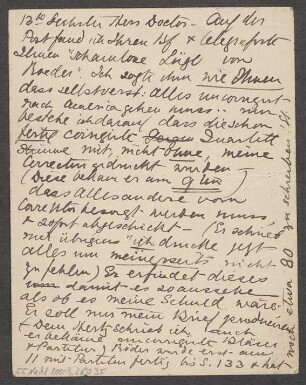 13ten Geehrter Herr Doctor – Auf der
Post fand ich Ihren Bf & telegraphirte
Ihnen "schamlose Lüge von
Roeder". Ich sagte ihm wie Ihnen
dass selbstverst: alles uncorrigirt
nach America gehen muss: nur
bestehe ich darauf dass die schon
fertig corrigirte Quartett
Stimme mit, nicht ohne, meine
Correctur gedruckt werden
(Diese bekam er am 9ten)
dass alles andere vom
Corrector besorgt werden muss,
& sofort abgeschickt – (Er schrieb
mir übrigens "ich drucke jetzt
alles um meinerseits nicht
zu fehlen) Er erfindet dieses
damit es so aussehe
als ob es meine Schuld wäre.
Er soll nur mein Brief produciren
– Dem Hertz schrieb ich, auch
er bekäme uncorrigirte Bläser
& Partitur, Röder wurde erst am
11 mit Partitur fertig, bis S. 133 & hat
noch etwa 80 zu schreiben